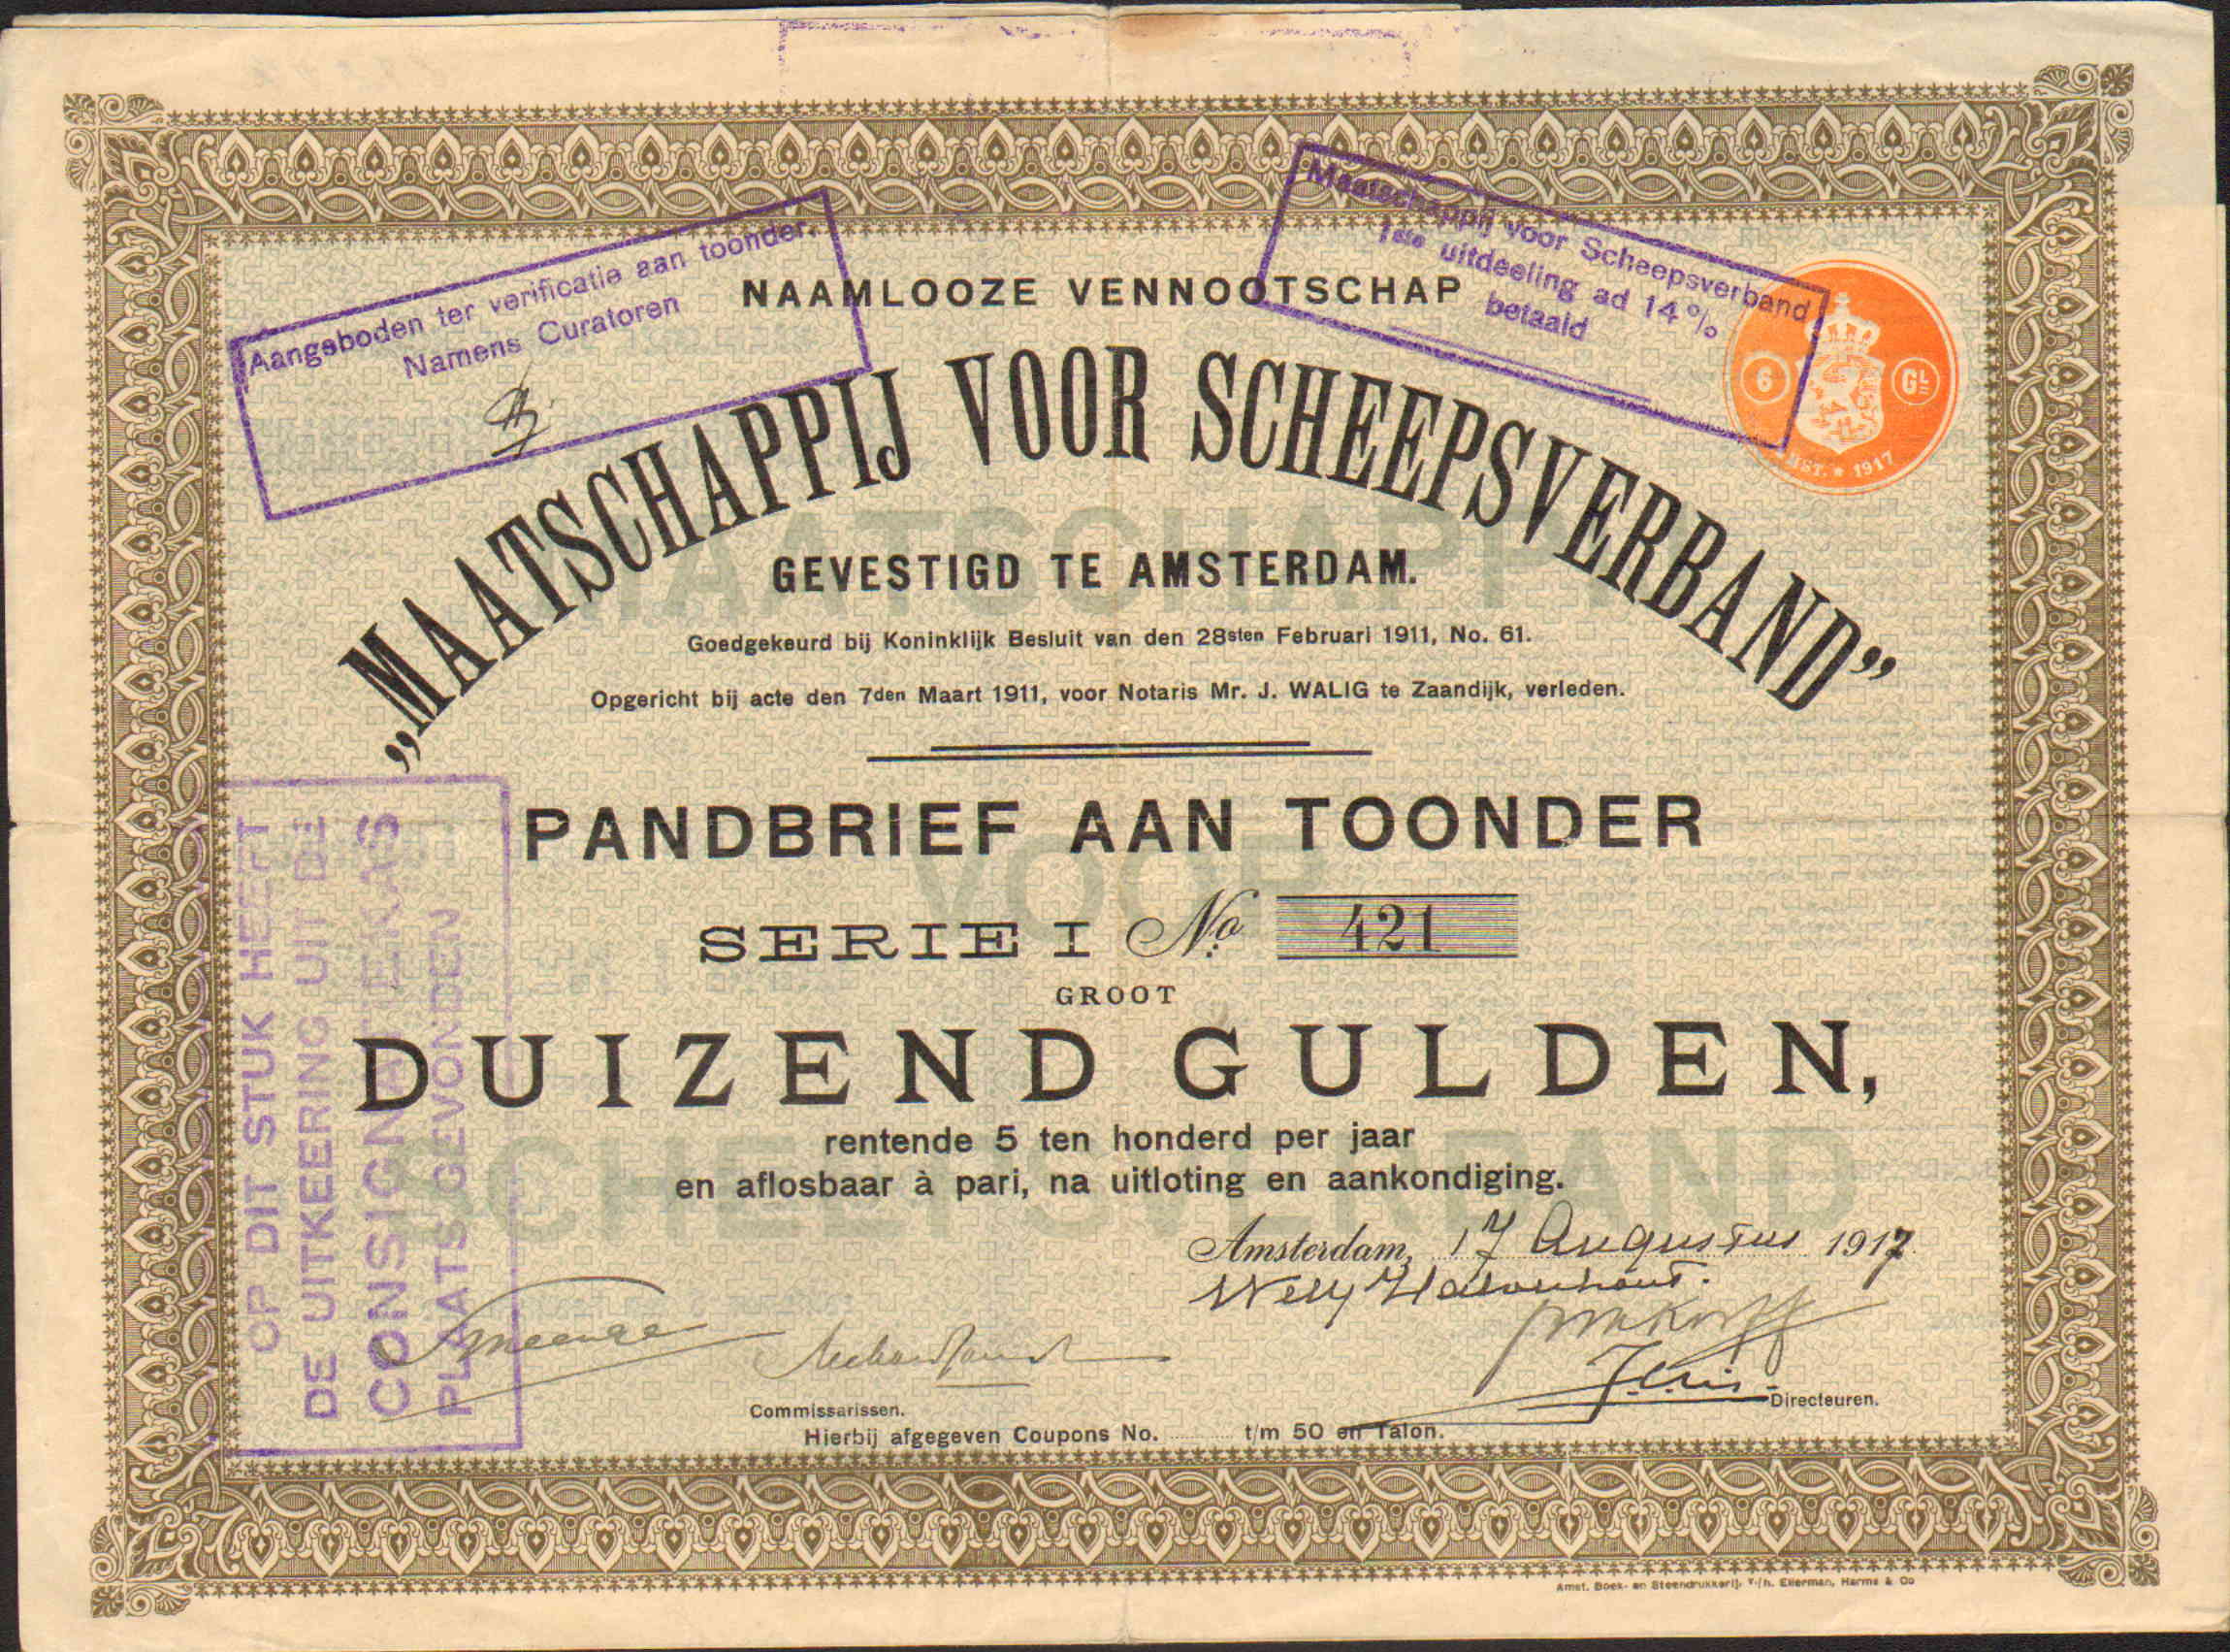 Aangeboden ter verificatie aan toonder.
Namens Curatoren
Maatschappij voor Scheepsverband
1ste uitdeeling ad 14 %
betaald
NAAMLOOZE VENNOOTSCHAP
„MAATSCHAPPIJ VOOR SCHEEPSVERBAND”
6
GL
1917
GEVESTIGD TE AMSTERDAM.
Goedgekeurd bij Koninklijk Besluit van den 28sten Februari 1911, No. 61.
Opgericht bij acte den 7den Maart 1911, voor Notaris Mr. J. WALIG te Zaandijk, verleden.
PANDBRIEF AAN TOONDER
SERIE I No. 421
GROOT
DUIZEND GULDEN,
rentende 5 ten honderd per jaar
en aflosbaar à pari, na uitloting en aankondiging.
MAATSCHAPPIJ
VOOR
SCHEEPSVERBAND
OP DIT STUK HEEFT
DE UITKEERING UIT DE
CONSIGNATIEKAS
PLAATS GEVONDEN
Amsterdam, 17 Augustus 1917.
Commissarissen.
Directeuren.
Hierbij afgegeven Coupons No. t/m 50 en Talon.
Amst. Boek- en Steendrukkerij, v/h. Ellerman, Harms & Co